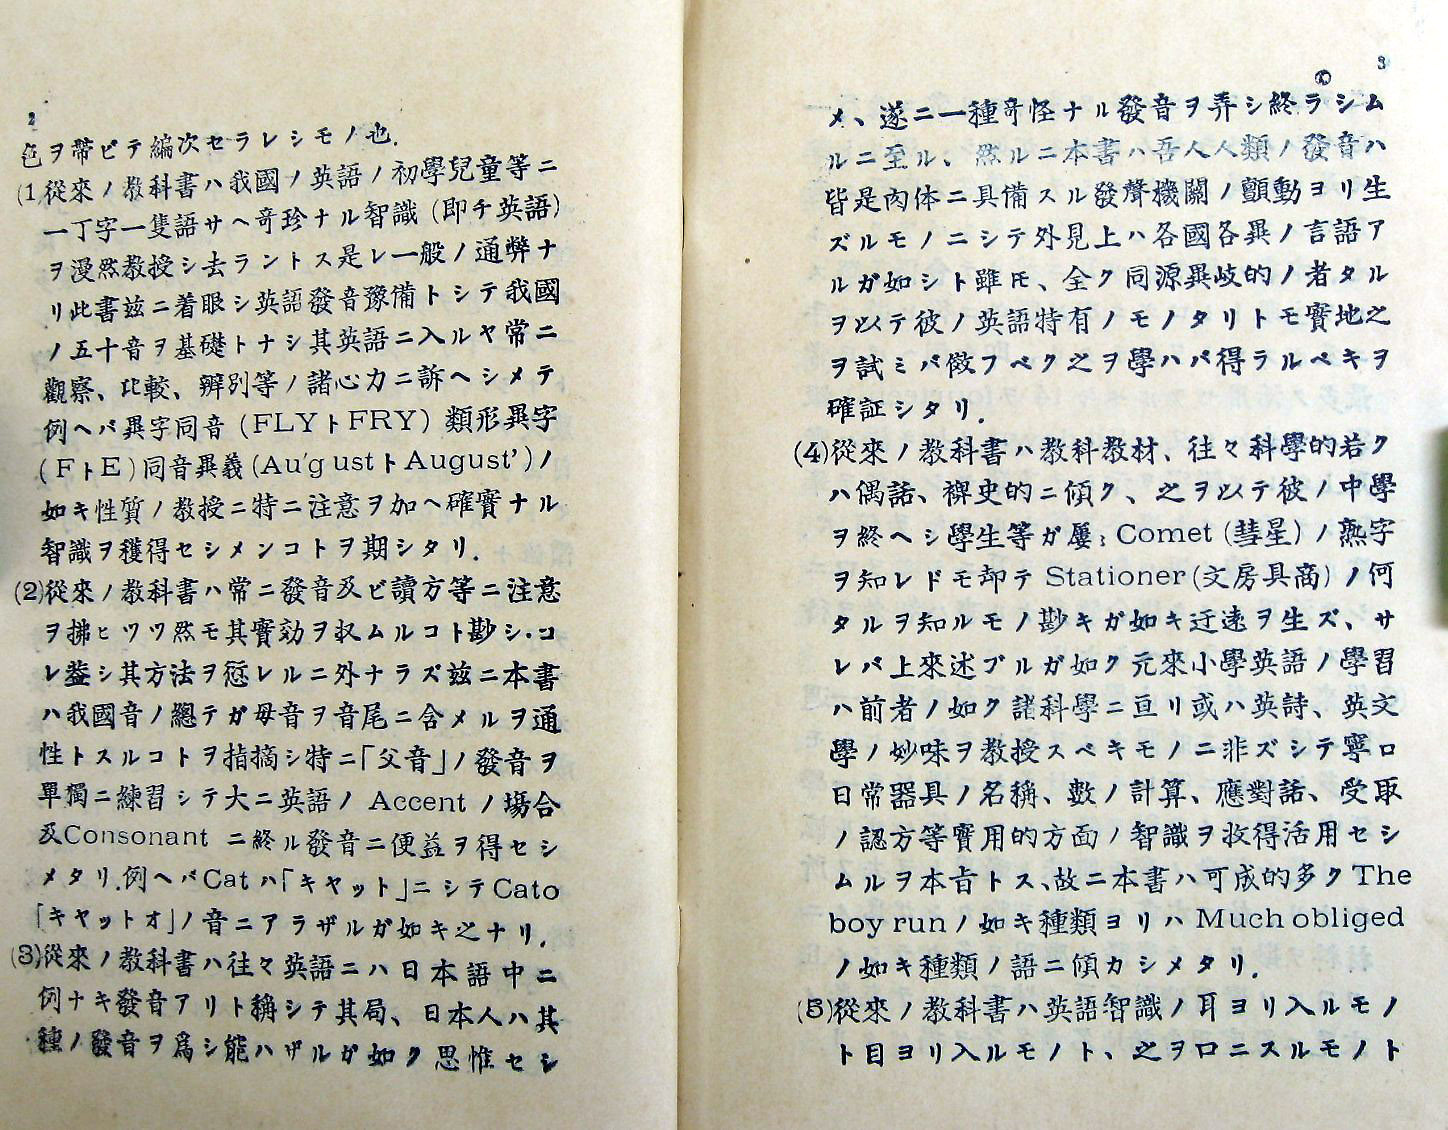 2
色ヲ帶ビテ編次セラレシモノ也.
(1)從來ノ教科書ハ我國ノ英語ノ初學兒童等ニ
一丁字一隻語サヘ奇珍ナル智識(即チ英語)
ヲ漫然教授シ去ラントス是レ一般ノ通弊ナ
リ此書玆ニ着眼シ英語發音豫備トシテ我國
ノ五十音ヲ基礎トナシ其英語ニ入ルヤ常ニ
觀察、比較、辨別等ノ諸心力ニ訴ヘシメテ
例ヘバ異字同音(FLYトFRY)類形異字
(FトE)同音異義(Au'gustトAugust')ノ
如キ性質ノ教授ニ特ニ注意ヲ加ヘ確實ナル
智識ヲ獲得セシメンコトヲ期シタリ.
(2)從來ノ教科書ハ常ニ發音及ビ讀方等ニ注意
ヲ拂ヒツツ然モ其實効ヲ収ムルコト尠シ.コ
レ葢シ其方法ヲ愆レルニ外ナラズ玆ニ本書
ハ我國音ノ總テガ母音ヲ音尾ニ含メルヲ通
性トスルコトヲ指摘シ特ニ「父音」ノ發音ヲ
單獨ニ練習シテ大ニ英語ノ Accent ノ場合
及Consonant ニ終ル發音ニ便益ヲ得セシ
メタリ.例ヘバCatハ「キャット」ニシテCato
「キャットオ」ノ音ニアラザルガ如キ之ナリ.
(3)從來ノ教科書ハ往々英語ニハ日本語中ニ
例ナキ發音アリト稱シテ其局、日本人ハ其
種ノ發音ヲ爲シ能ハザルガ如ク思惟セシ
3
メ、遂ニ一種奇怪ナル發音ヲ弄シ終ラシム
ルニ至ル、然ルニ本書ハ吾人人類ノ發音ハ
皆是肉体ニ具備スル發聲機關ノ顫動ヨリ生
ズルモノニシテ外見上ハ各國各異ノ言語ア
ルガ如シト雖モ、全ク同源異岐的ノ者タル
ヲ以テ彼ノ英語特有ノモノタリトモ實地之
ヲ試ミバ傚フベク之ヲ學ハバ得ラルベキヲ
確証シタリ.
(4)從來ノ教科書ハ教科教材、往々科學的若ク
ハ偶話、稗史的ニ傾ク、之ヲ以テ彼ノ中學
ヲ終ヘシ學生等ガ屢〻Comet(彗星)ノ熟字
ヲ知レドモ却テ Stationer(文房具商)ノ何
タルヲ知ルモノ尠キガ如キ迂遠ヲ生ズ、サ
レバ上來述ブルガ如ク元來小學英語ノ學習
ハ前者ノ如ク諸科學ニ亘リ或ハ英詩、英文
學ノ妙味ヲ教授スベキモノニ非ズシテ寧ロ
日常器具ノ名稱、數ノ計算、應對話、受取
ノ認方等實用的方面ノ智識ヲ收得活用セシ
ムルヲ本旨トス、故ニ本書ハ可成的多ク The
boy run ノ如キ種類ヨリハ Much obliged
ノ如キ種類ノ語ニ傾カシメタリ.
(5)從來ノ教科書ハ英語智識ノ耳ヨリ入ルモノ
ト目ヨリ入ルモノト、之ヲロニスルモノト